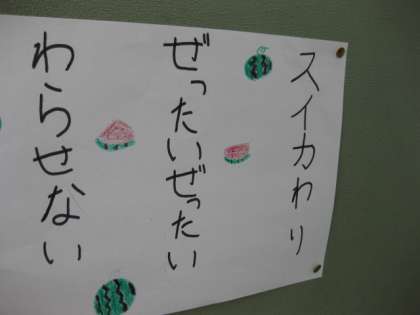 スイカわり
ぜったいぜったい
わらせない